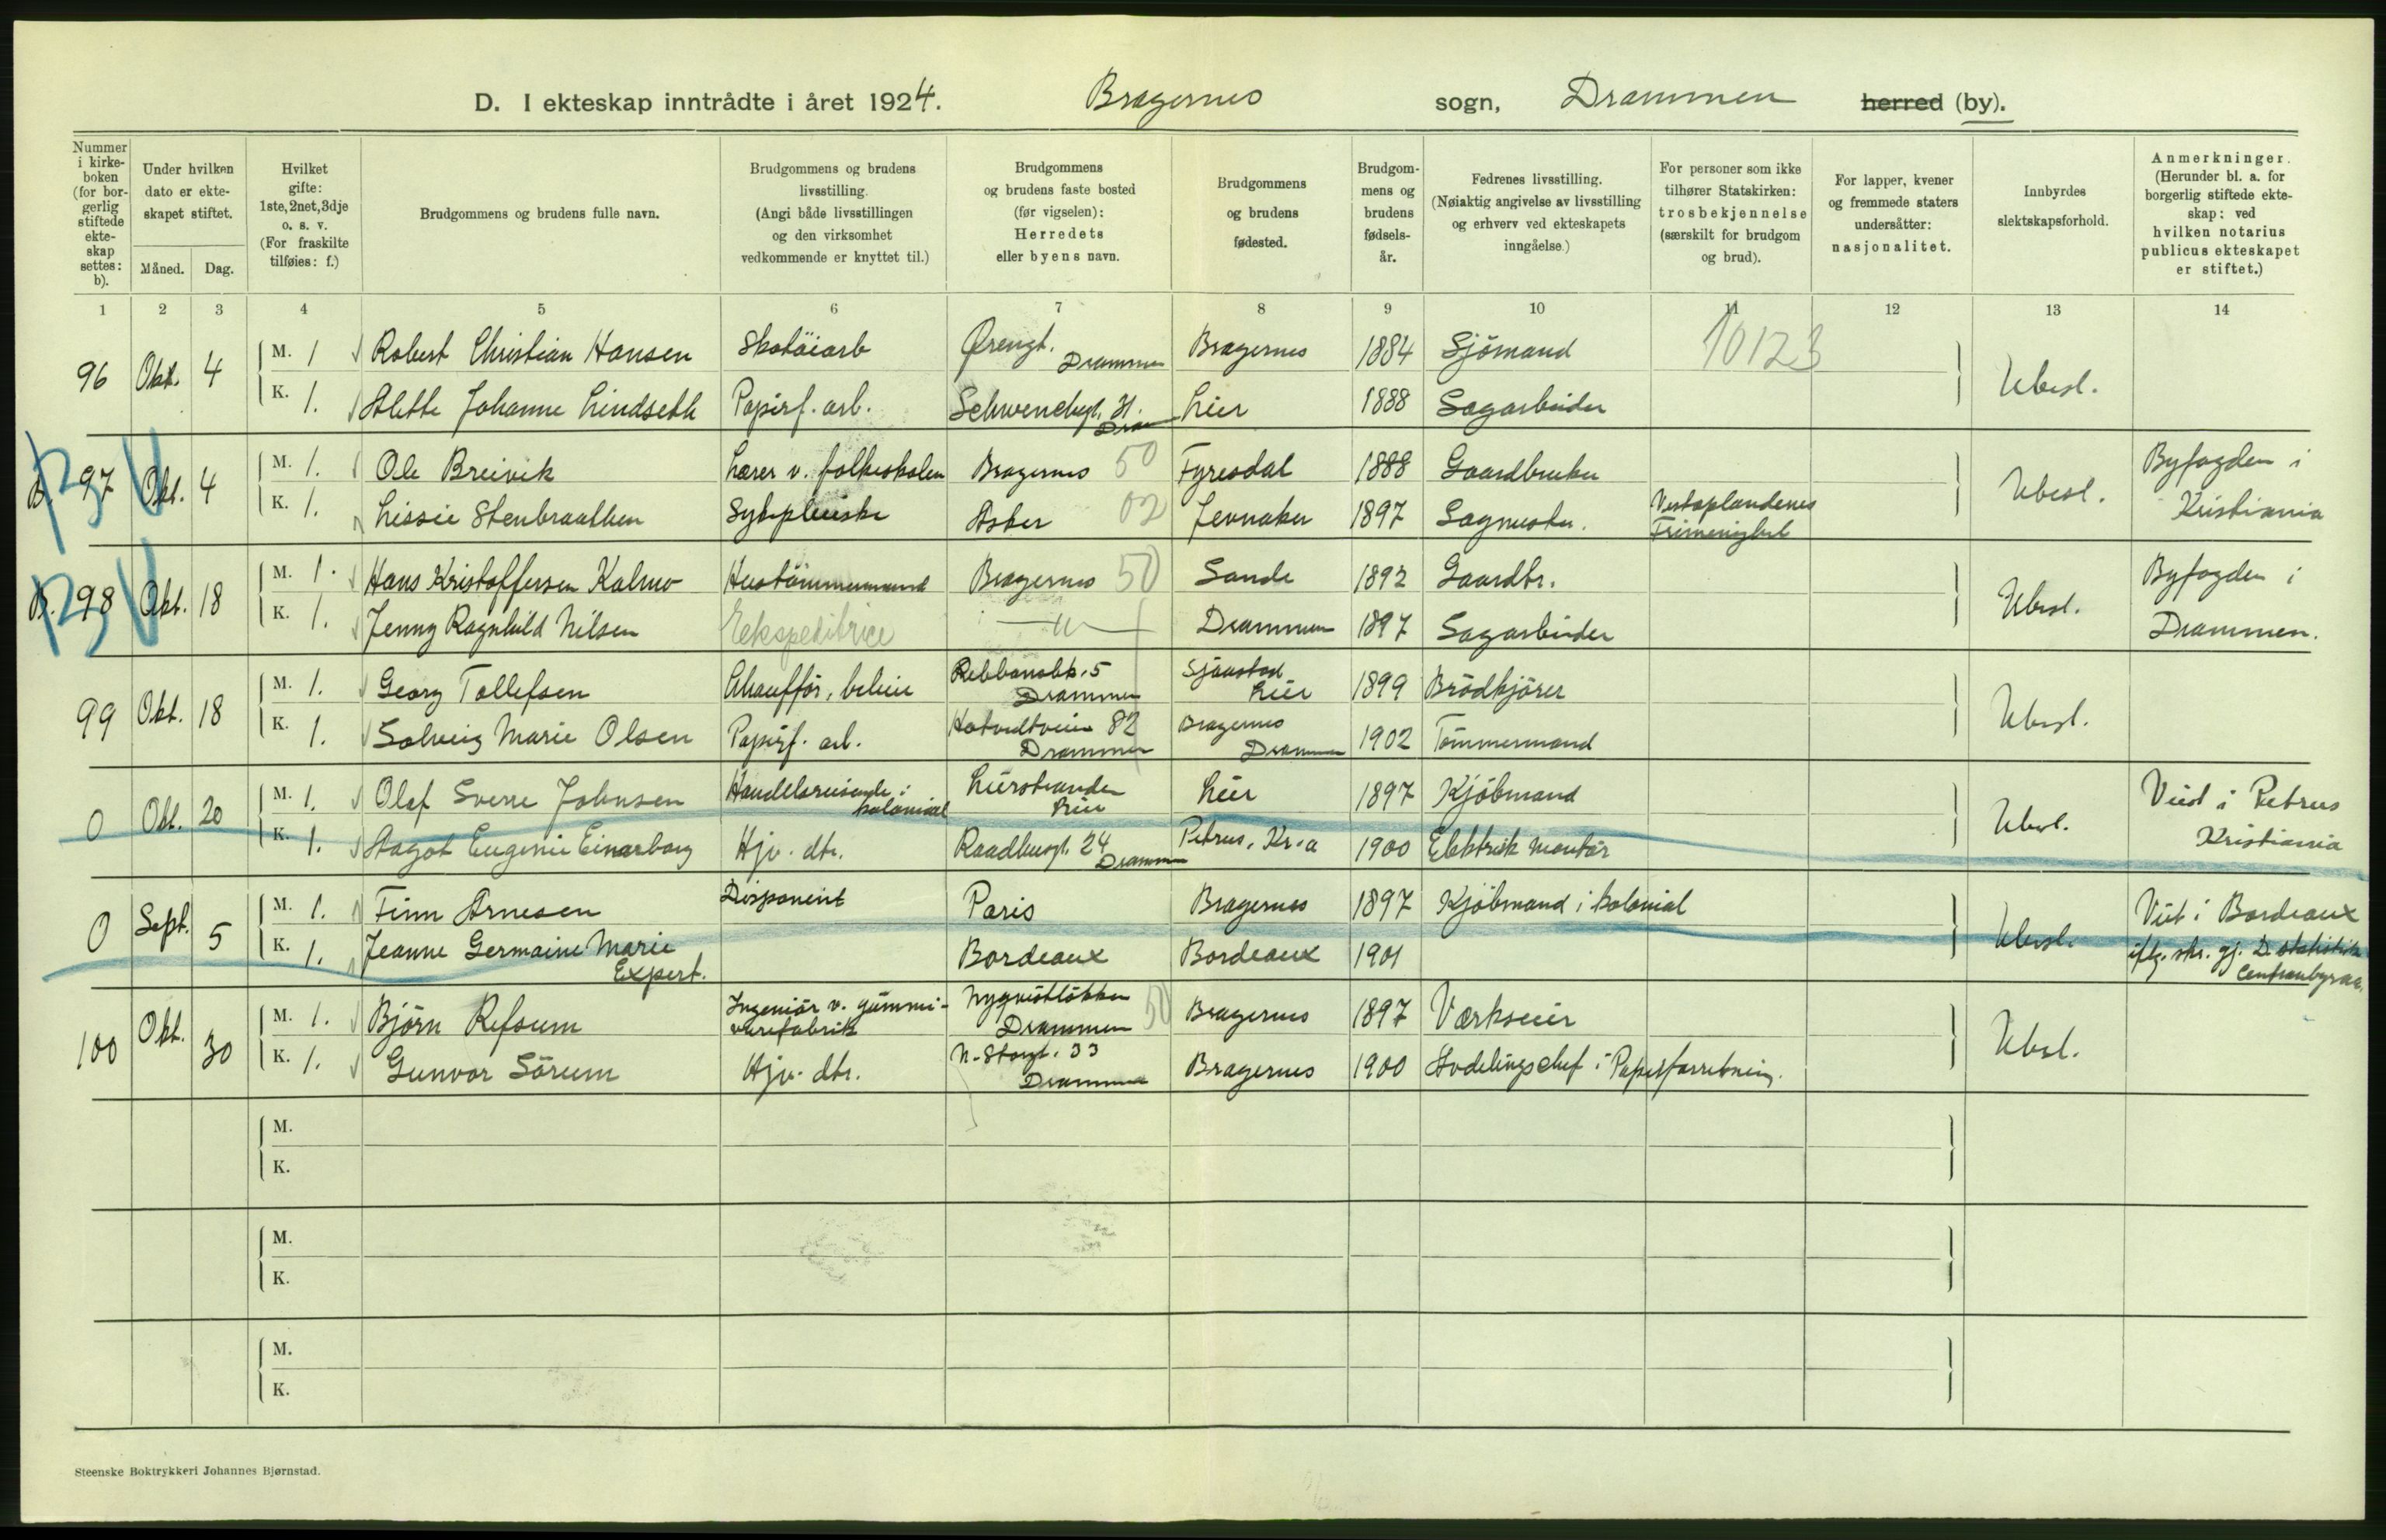 D. I ekteskap inntrådte i året 1924. Bragernes sogn, Drammen herred (by).
Nummer i kirke-boken (for bor-gerlig stiftede ekte-skap settes: b).
Under hvilken dato er ekte-skapet stiftet.
Måned. Dag.
Hvilket gifte: 1ste, 2net, 3dje o. s. v. (For fraskilte tilføies: f.)
Brudgommens og brudens fulle navn.
Brudgommens og brudens livsstilling. (Angi både livsstillingen og den virksomhet vedkommende er knyttet til.)
Brudgommens og brudens faste bosted (før vigselen): Herredets eller byens navn.
Brudgommens og brudens fødested.
Brudgom-mens og brudens fødsels-år.
Fedrenes livsstilling. (Nøiaktig angivelse av livsstilling og erhverv ved ekteskapets inngåelse.)
For personer som ikke tilhører Statskirken: trosbekjennelse (særskilt for brudgom og brud).
For lapper, kvener og fremmede staters undersåtter: nasjonalitet.
Innbyrdes slektskapsforhold.
Anmerkninger. (Herunder bl. a. for borgerlig stiftede ekte-skap: ved hvilken notarius publicus ekteskapet er stiftet.)
1 2 3 4 5 6 7 8 9 10 11 12 13 14
96 Okt. 4 M. 1 Robert Christian Hansen Skotöiarb Örengt. Drammen Bragernes 1884 Sjömand 10123 Ubesl.
K. 1. Alette Johanne Lindseth Papirf. arb. Schwenckegt. 31. Dram Lier 1888 Sagarbeider
B. 97 Okt. 4 M. 1. Ole Breivik Lærer v. folkeskolen Bragernes 50 Fyresdal 1888 Gaardbruker Ubesl. Byfogden i
K. 1. Lissie Stenbraathen Sykepleierske Asker 02 Jevnaker 1897 Sagmester. Vestoplandenes Frimenighet Kristiania
B. 98 Okt. 18 M. 1. Hans Kristoffersen Kalmo Hustömmermand Bragernes 50 Sande 1892 Gaardbr. Ubesl. Byfogden i
K. 1. Jenny Ragnhild Nilsen Ekspeditrice — " — Drammen 1897 Sagarbeider Drammen.
99 Okt. 18 M. 1. Georg Tollefsen Chaufför, beleie Rebbansbk. 5 Drammen Sjåstad Lier 1899 Brödkjörer Ubesl.
K. 1. Solveig Marie Olsen Papirf. arb. Hotvedtveien 82 Drammen Bragernes Drammen 1902 Tömmermand
0 Okt. 20 M. 1. Olaf Sverre Johnsen Handelsreisende i kolonial Lierstranden Lier Lier 1897 Kjöbmand Ubesl. Viet i Petrus
K. 1. Aagot Eugenie Einarborg Hjv. dtr. Raadhusgt. 24 Drammen Petrus, Kr.a 1900 Elektrisk montör Kristiania
0 Sept. 5 M. 1. Finn Arnesen Disponent Paris Bragernes 1897 Kjöbmand i kolonial Ubesl. Viet i Bordeaux
K. 1. Jeanne Germaine Marie Expert. Bordeaux Bordeaux 1901 iflg. skr. gj. D. statistiske Centralbyraa.
100 Okt. 30 M. 1. Björn Refsum Ingeniör v. gummi-varefabrik Nyqvistlökken Drammen 50 Bragernes 1897 Verkseier Ubesl.
K. 1. Gunvor Sörum Hjv. dtr. N. Storgt. 33 Drammen Bragernes 1900 Avdelingschef i Papirforretning.
M.
K.
M.
K.
M.
K.
Steenske Boktrykkeri Johannes Bjørnstad.